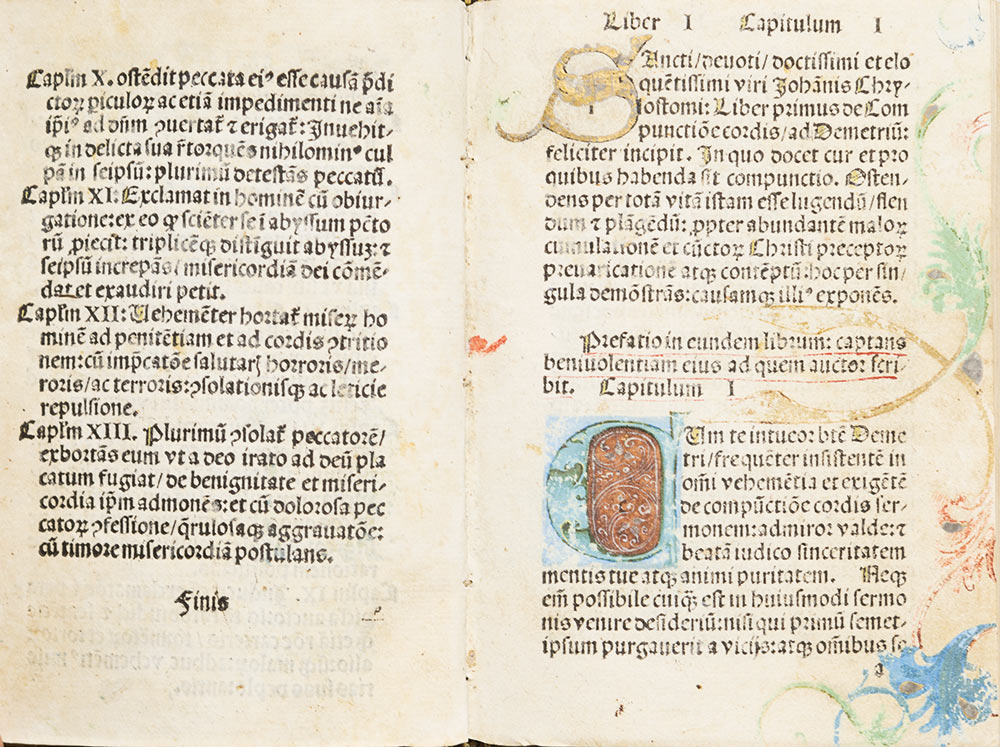 Caplm̄ X. ostēdit peccata eiꝰ esse causā p̄di
ctoꝝ piculoꝝ ac etiā impedimenti ne aīa
ip̄iꝰ ad dn̄m ꝯuertat̄ ⁊ erigat̄: Inuehit-
qꝫ in delicta sua r̄torquēs nihilominꝰ cul
pā in seipsū: plurimū detestās peccatū.
Caplm̄ XI: Exclamat in hominē cū obiur-
gatione: ex eo ꝙ sciēter se ī abyssum pctō
rū ꝓiecit: triplicēqꝫ distīguit abyssuꝫ: ⁊
seipsū increpās/ misericordiā dei cōmē-
dat et exaudiri petit.
Caplm̄ XII: Uehemēter hortat̄ miseꝝ ho
minē ad penitētiam et ad cordis ꝯtritio
nem: cū imp̄catōe salutarꝭ horroris/ me-
roris/ ac terroris: ꝯsolationisqꝫ ac leticie
repulsione.
Caplm̄ XIII. Plurimū ꝯsolat̄ peccatorē/
exhortās eum vt a deo irato ad deū pla
catum fugiat/ de benignitate et miseri-
cordia ip̄m admonēs: et cū dolorosa pec
catoꝝ ꝯfessione/ q̄rulosaqꝫ aggrauatōe:
cū timore misericordiā postulans.
Finis
Liber I Capitulum I
SAncti/ deuoti/ doctissimi et elo
quētissimi viri Johānis Chry-
sostomi: Liber primus de Com
punctiōe cordis/ ad Demetriū:
feliciter incipit. In quo docet cur et pro
quibus habenda sit compunctio. Osten-
dens per totā vitā istam esse lugendū/ flen
dum ⁊ plāgēdū: ꝓpter abundantē maloꝝ
cumulationē et cūctoꝝ Christi preceptoꝝ
preuaricatione atqꝫ contēptū: hoc per sin/
gula demōstrās: causamqꝫ illiꝰ exponēs.
Prefatio in eundem librum: captans
beniuolentiam eius ad quem auctor scri-
bit. Capitulum I
CUm te intueor btē Deme
tri/ frequēter insistentē in
om̄i vehemētia et exigētē
de compunctiōe cordis ser-
monem: admiror valde: ⁊
beatā iudico sinceritatem
mentis tue atqꝫ animi puritatem. Neqꝫ
em̄ possibile cuiqꝫ est in huiusmodi sermo
nis venire desideriū: nisi qui primū semet-
ipsum purgauerit a vicijs: atqꝫ om̄ibus se
a